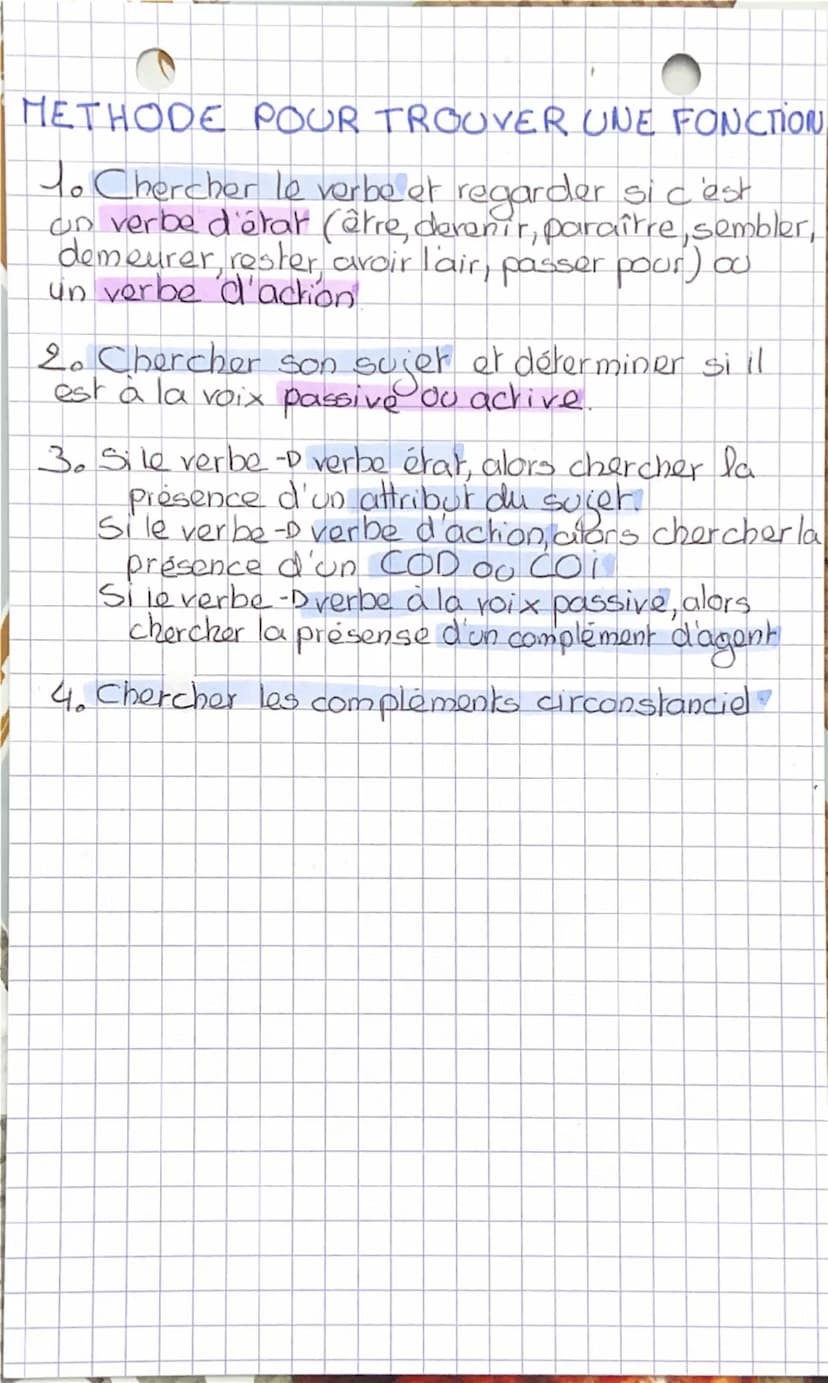 METHODE POUR TROUVER UNE FONCTION
1. Chercher le verbe et regarder si c'est
un verbe d'état (être, devenir, paraître, sembler,
demeurer, rester, avoir l'air, passer pour) ou
un verbe d'action
2. Chercher son sujet et déterminer si il
est à la voix passive ou active.
3. Si le verbe → verbe état, alors chercher la
présence d'un attribut du sujet.
Si le verbe → verbe d'action, alors chercher la
présence d'un COD ou COI
Si le verbe → verbe à la voix passive, alors
chercher la présense d'un complément d'agent
4. Chercher les compléments circonstanciel